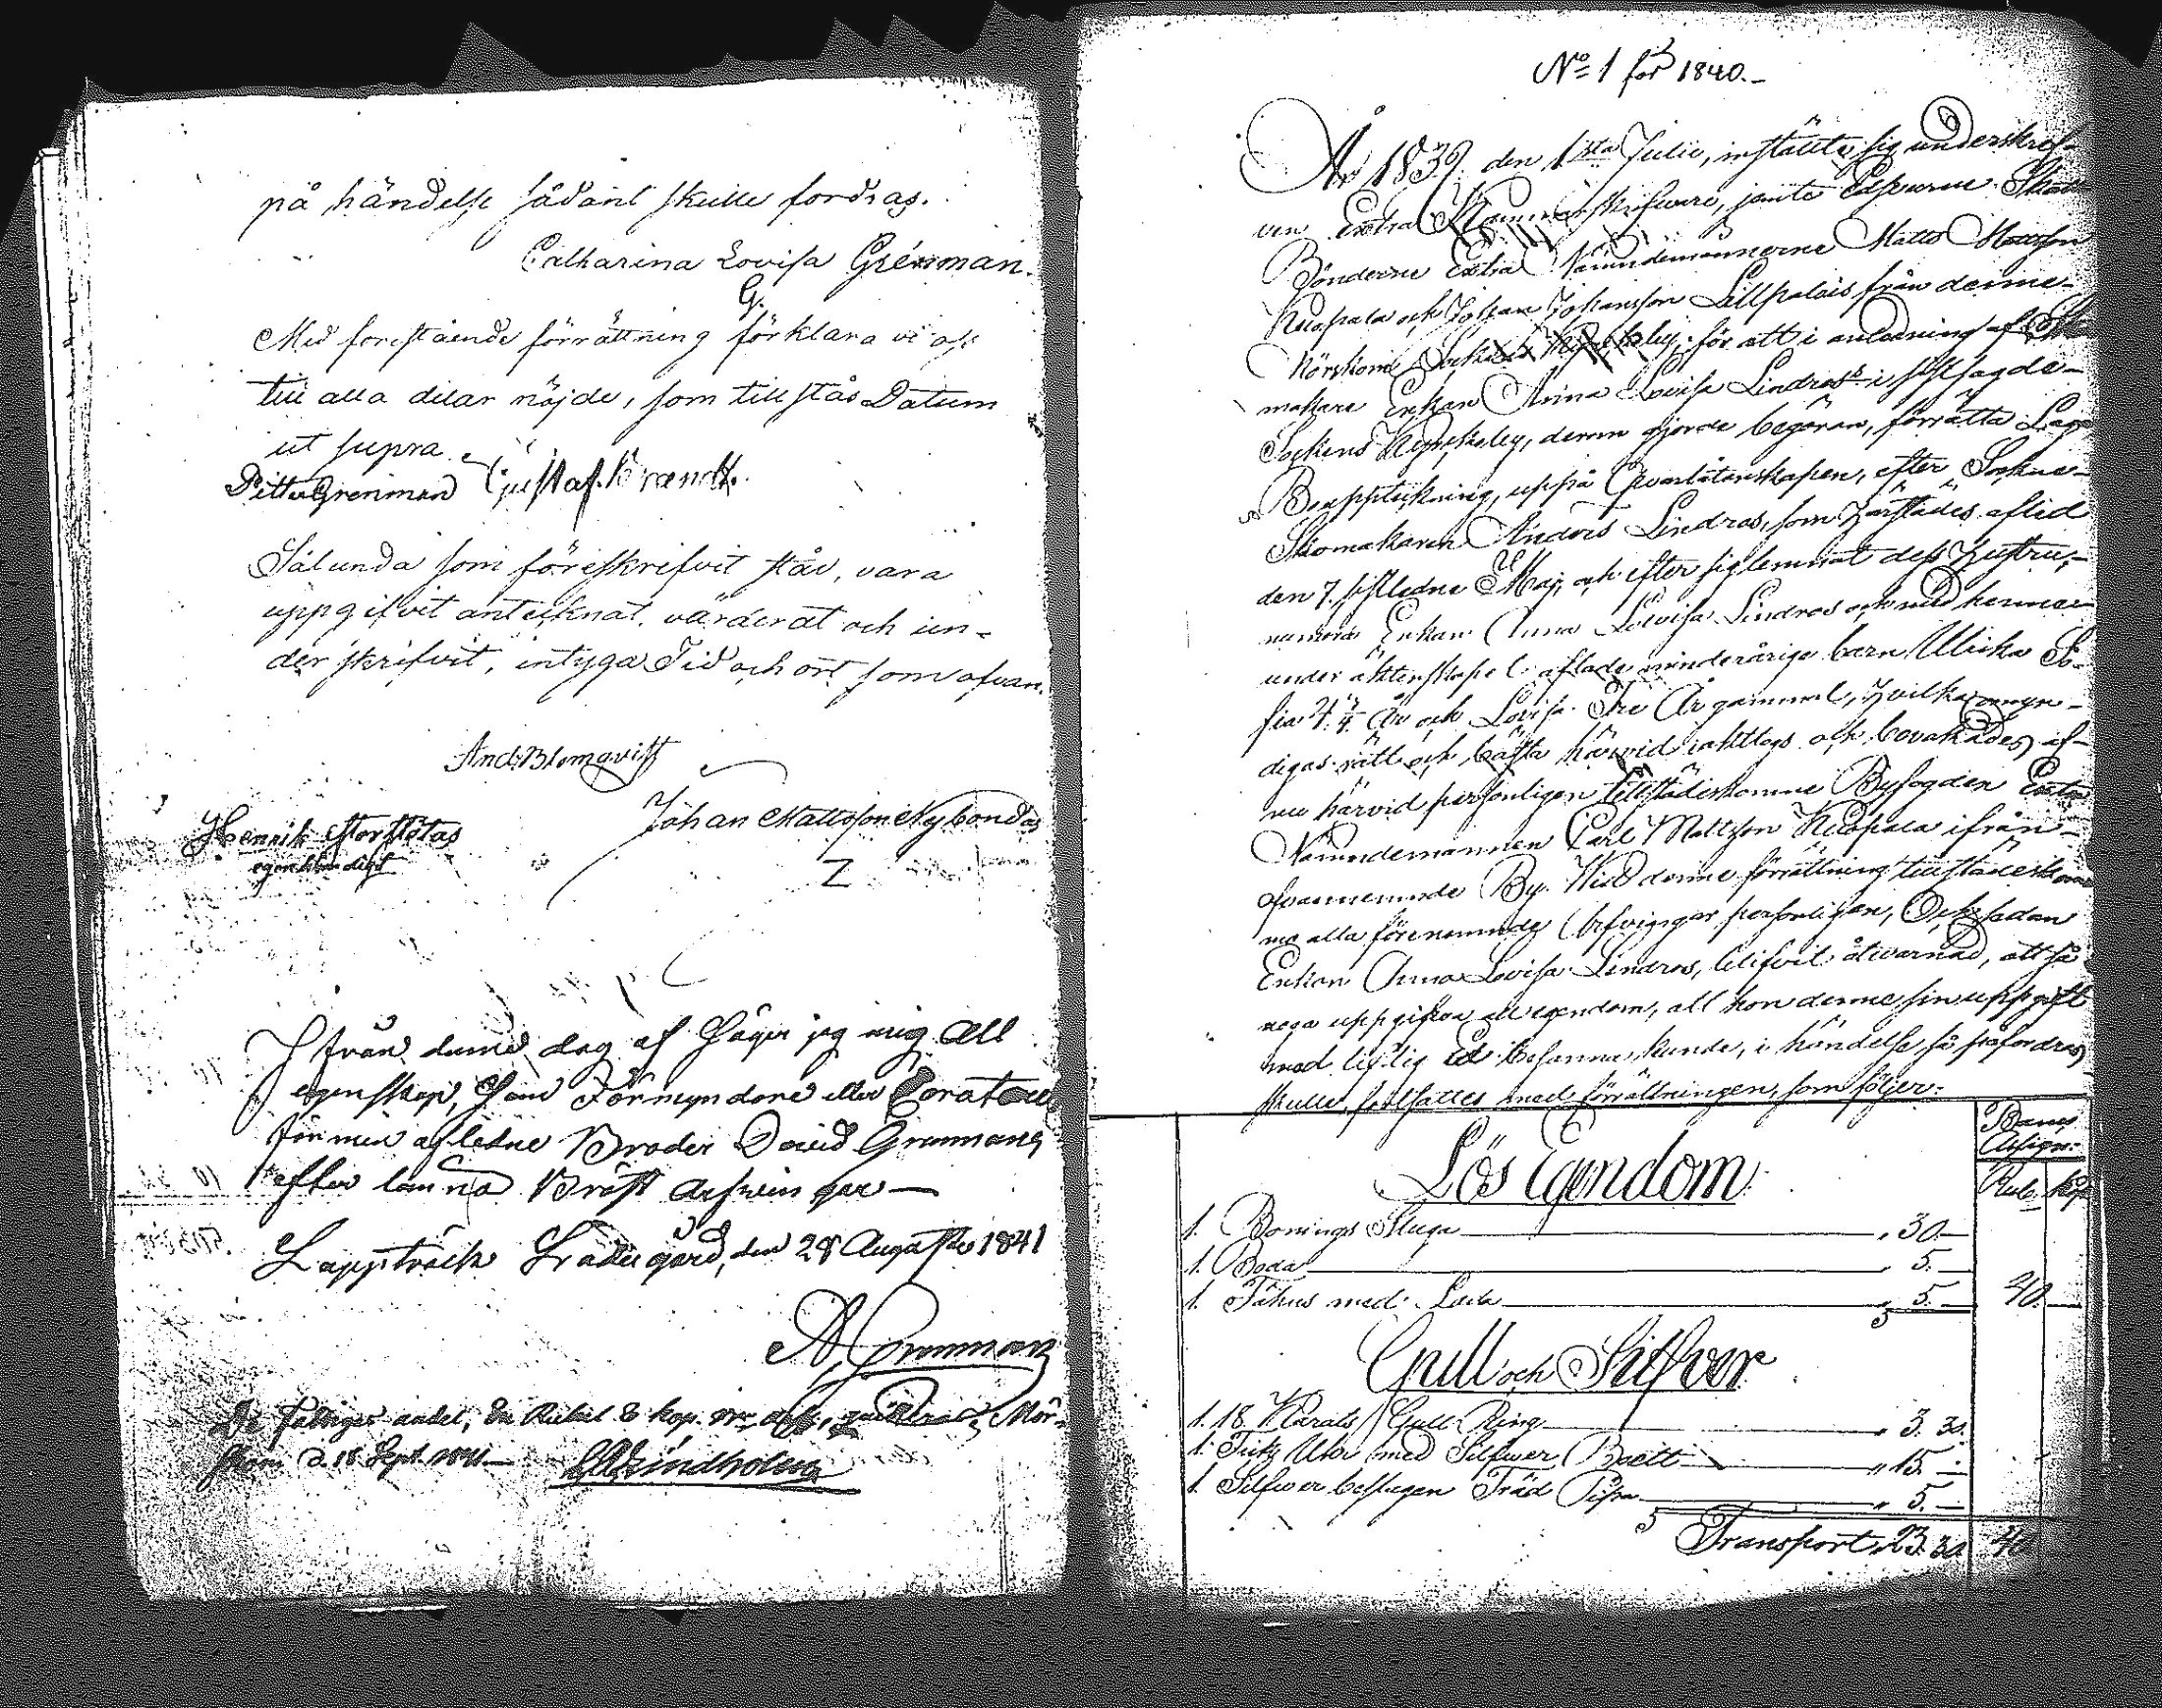 på händelse sådant skulle fordras.
Catharina Lovisa Grénman.
G.
Med forestående förrättning förklara vi oss
till alla delar nöjde, som tillstås Datum
ut supra.
Petter Grenman Gustaf Brandt.
Sålunda som föreskrifvit står, vara
uppgifvit antecknat, värderat och un-
der skrifvit, intyga Tid och ort som ofvan.
And: Blomqvist
Henrik Storstötas
egenhändigt
Johan Mattsson Nybondas
Ifrån denne dag af säger jag mig all
egenskap, som Förmyndare eller
för min afledne Broder David Grenmans
efter lämna Bröst arfwingar —
Lappträsk den 28 Augusti 1841
A Grenman
De Fattiges andel, En Rubel 8 kop. Mör-
skom d. 18 Sept. 1841. Lindholm
No 1 för 1840.-
År 1839 den 1sta Julii, inställte sig underskref-
ven Extra jemte Edsvurne
Bönderne Extra Nämndemännerne Matts Mattsson
och Johan Johansson Lillpalais från denne
Mörskom Sockens by, för att i anledning af
makare Enkan Anna Lovisa Lindros i sistsagde
Sockens by, derom gjorde begäran, förrätta Laga
Bouppteckning, uppå Qvarlåtenskapen, efter Sockne-
Skomakaren Anders Lindros, som härstädes afled
den 7. sistledne Maj, och efter sig lemnat dess Hustru,
numera Enkan Anna Lovisa Lindros och med henne
under äktenskapet aflade minderåriga barn Ulrika So-
fia 4 1/4 År och Lovisa Tre År gammal, hvilka omyn-
digas rätt och bästa härvid iakttogs och bevakades af
nu härvid personligen tillstädeskomne Byfogden Extra
Nämndemannen Carl Mattsson ifrån
ofvannemnde By. Wid denne förrättning tillstädeskom-
mo alla förenemnde Arfvingar personligen, Och sedan
Enkan Anna Lovisa Lindros, blifvit åtvarnad, att så
noga uppgifva all egendom, att hon denne sin uppgift
med liflig Ed besanna kunde, i händelse så påfordras
skulle, fortsattes med förrättningen, som följer:
Banco
Assign:
Rub. Kop.
Lös Egendom
1. Bonings Stuga 30.—
1. Boda 5.—
1. Fähus med Lada 5.— 40.—
Gull och Silfver
1. 18 Karats Gull Ring 3. 30.
1. Fick Uhr med Silfwer Boett 15.—
1. Silfwer beslagen Träd Pipa 5.—
Transport 23. 30 40